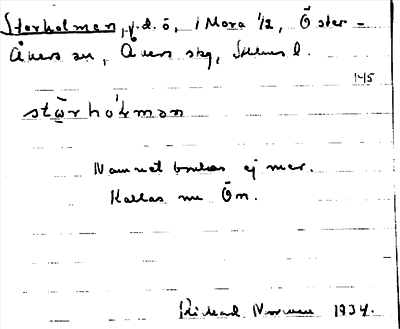 Storholmen, f.d. ö, i Mora 1/2, Öster-
Åkers sn, Åkers skg, Sthlms l.
145
stὼrhó'lmən
Namnet brukas ej mer.
Kallas nu Ön.
Rickard 1934.